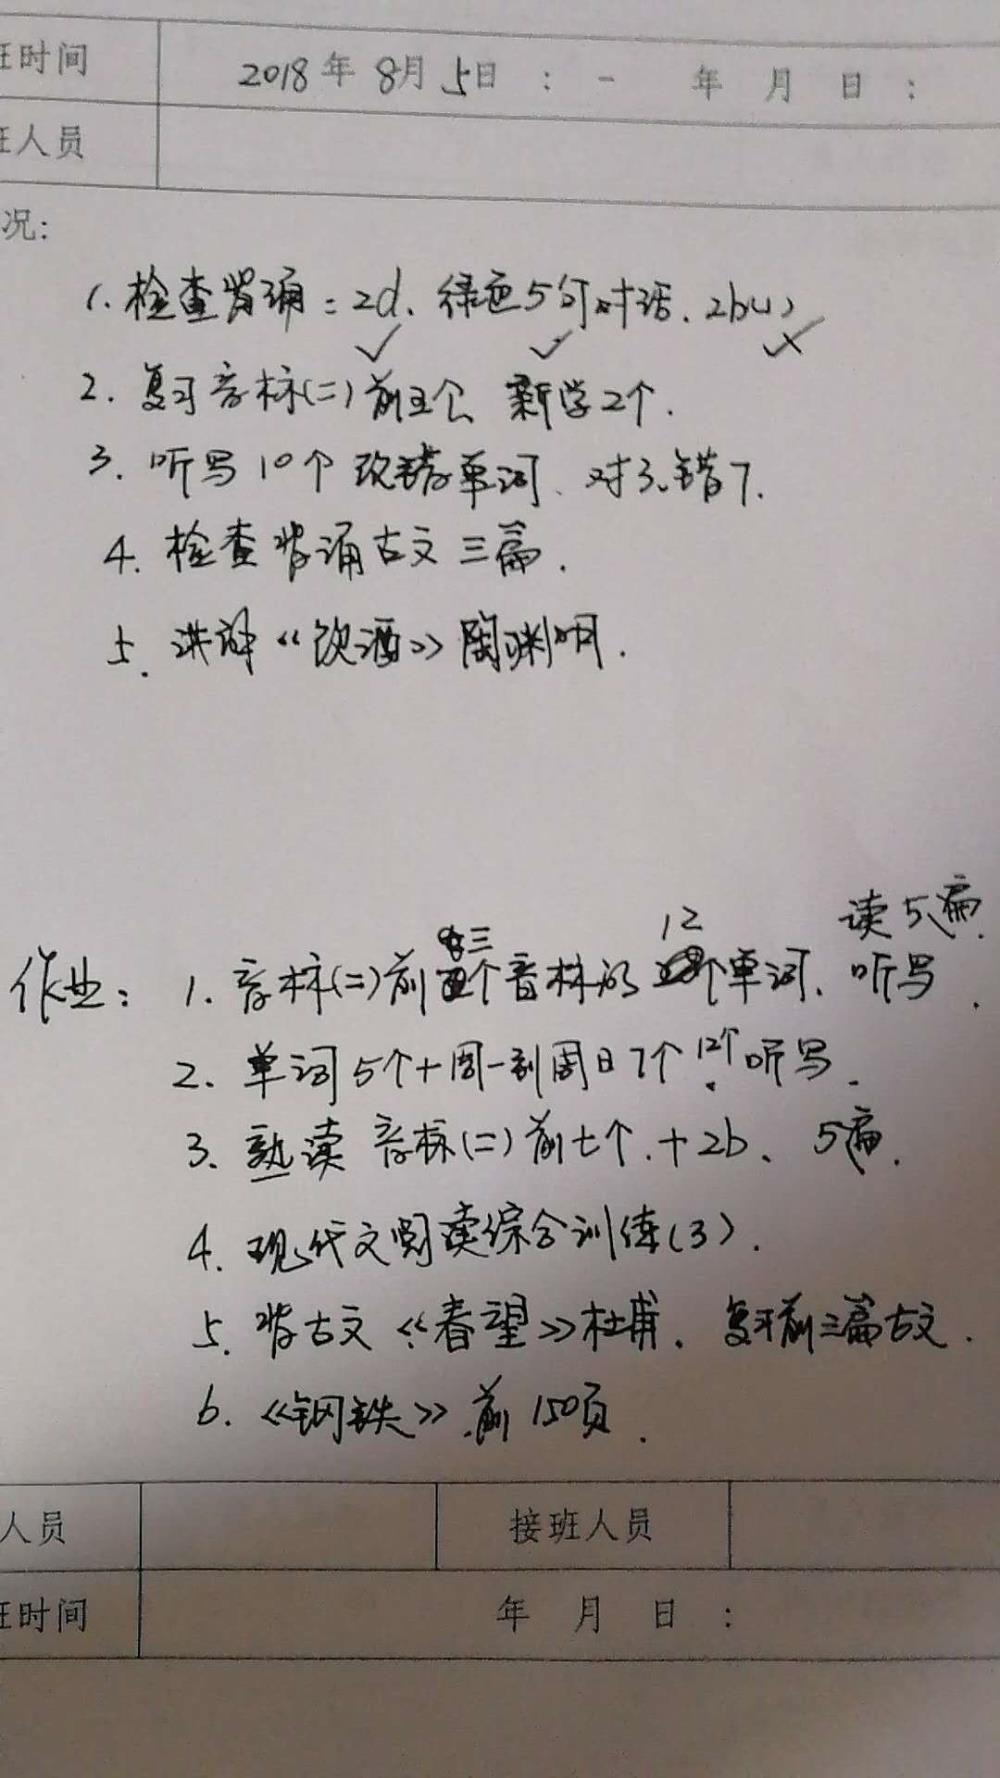 班时间 2018年8月5日 : - 年 月 日 :
班人员
况:
1.检查背诵:2d、绿色5句对话、2b(1)
2.复习音标(二)前五个 新学2个.
3.听写10个改错单词、对3、错7.
4.检查背诵古文三篇.
5.讲解《饮酒》陶渊明.
读5遍.
三 12
作业: 1.音标(二)前个音标的个单词、听写.
2.单词5个+周一到周日7个 12个 听写.
3.熟读音标(二)前七个.+2b、5遍.
4.现代文阅读综合训练(3).
5.背古文《春望》杜甫.复习前三篇古文.
6.《钢铁》前150页.
人员 接班人员
班时间 年 月 日 :